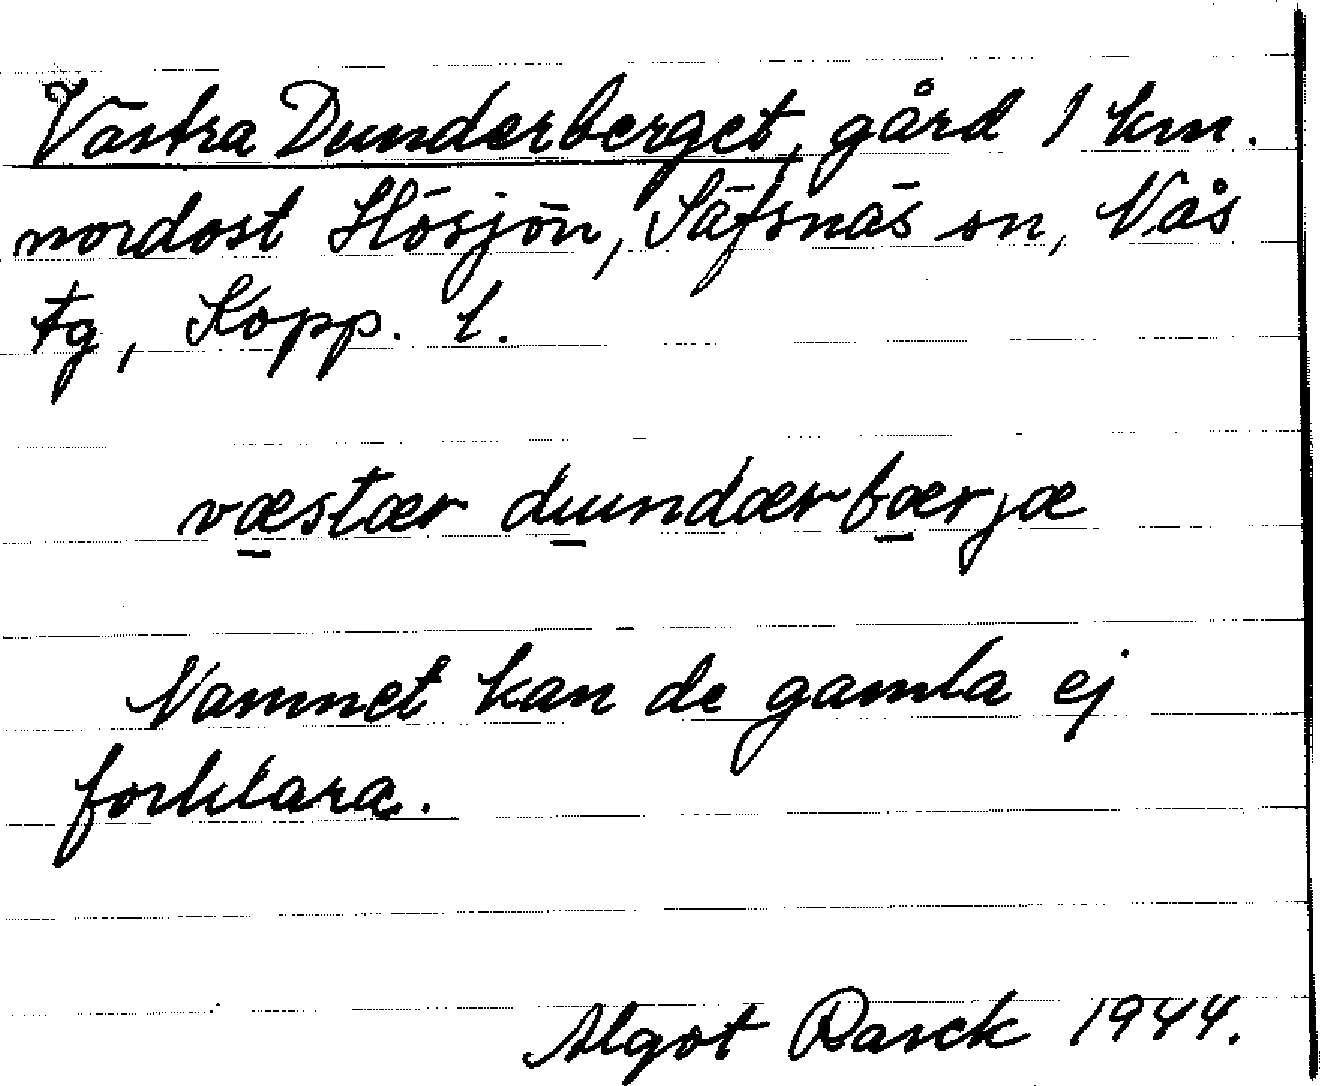 Västra Dunderberget, gård 1 km.
nordost Hösjön, Säfsnäs sn, Nås
fg, Kopp. l.
væstær dundærbærjæ
Namnet kan de gamla ej
förklara.
Algot Barck 1944.